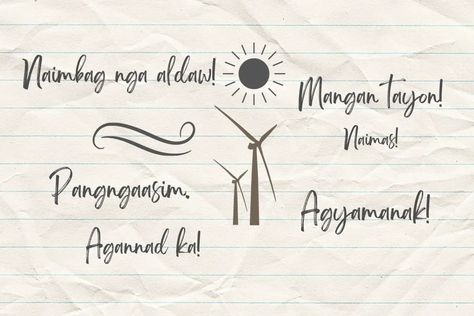 Naimbag nga aldaw!
Mangan tayon!
Naimas!
Pangngaasim.
Agyamanak!
Agannad ka!